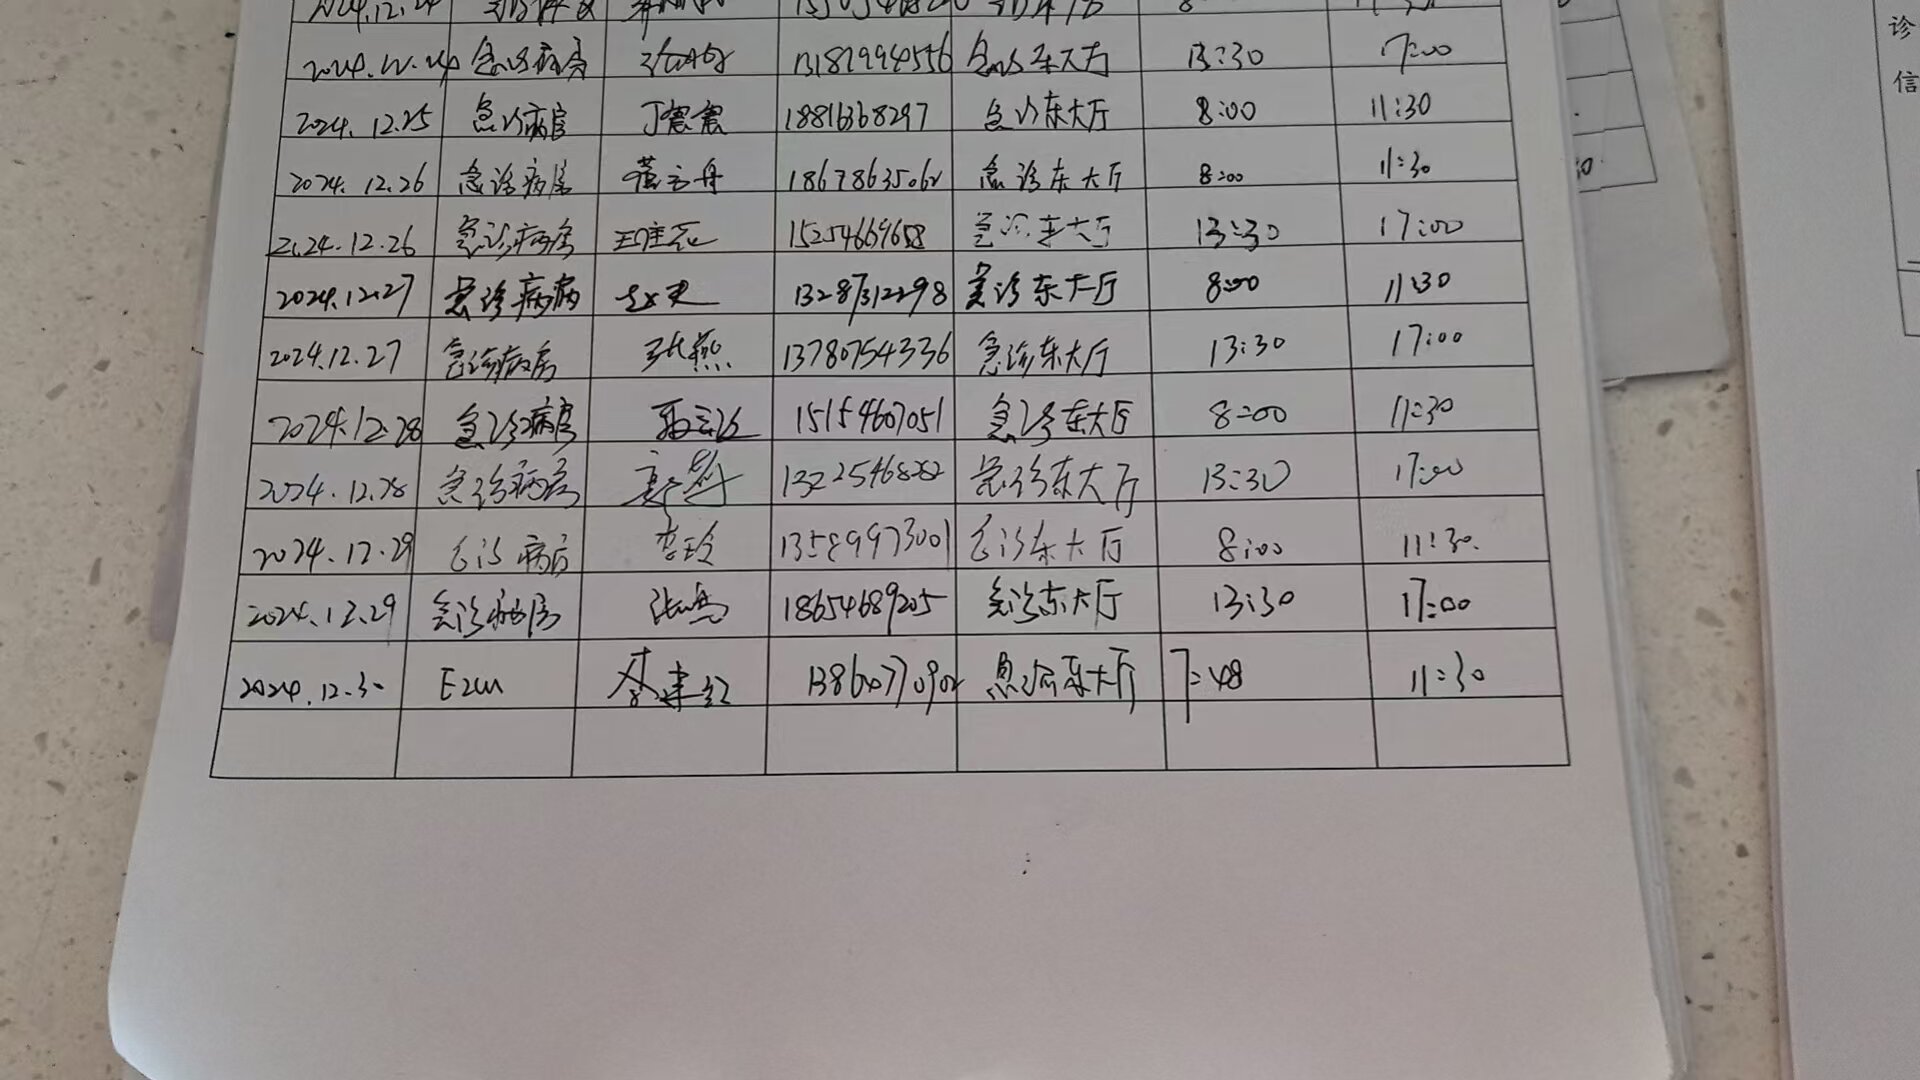 2024.12.24
2024.12.24 急诊病房 急诊东大厅 13:30 17:00
2024.12.25 急诊病房 丁震震 18816368297 急诊东大厅 8:00 11:30
2024.12.26 急诊病房 18678635062 急诊东大厅 8:00 11:30
2024.12.26 急诊病房 15254669658 急诊东大厅 13:30 17:00
2024.12.27 急诊病病 13287312298 急诊东大厅 8:00 11:30
2024.12.27 急诊病房 张燕 13780754336 急诊东大厅 13:30 17:00
2024.12.28 急诊病房 15154607051 急诊东大厅 8:00 11:30
2024.12.28 急诊病房 急诊东大厅 13:30 17:00
2024.12.29 急诊病房 李玲 13589973001 急诊东大厅 8:00 11:30.
2024.12.29 急诊病房 18654689205 急诊东大厅 13:30 17:00
2024.12.30 急诊东大厅 7:48 11:30
诊
信